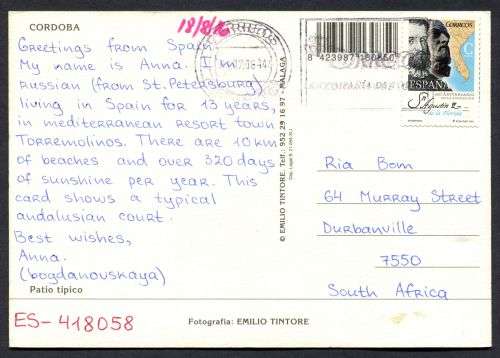 CORDOBA
18/8/16
Greetings from Spain.
My name is Anna. I'm
russian (from St. Petersburg)
living in Spain for 13 years,
in mediterranean resort town
Torremolinos. There are 10 km
of beaches and over 320 days
of sunshine per year. This
card shows a typical
andalusian court.
Best wishes,
Anna.
(bogdanovskaya)
Patio típico
ES-418058
Fotografía: EMILIO TINTORE
© EMILIO TINTORE. Telf.: 952 29 16 97 - MALAGA
CORREOS
8 423987 160660
CORREOS
ESPAÑA
Ria Bom
64 Murray Street
Durbanville
7550
South Africa